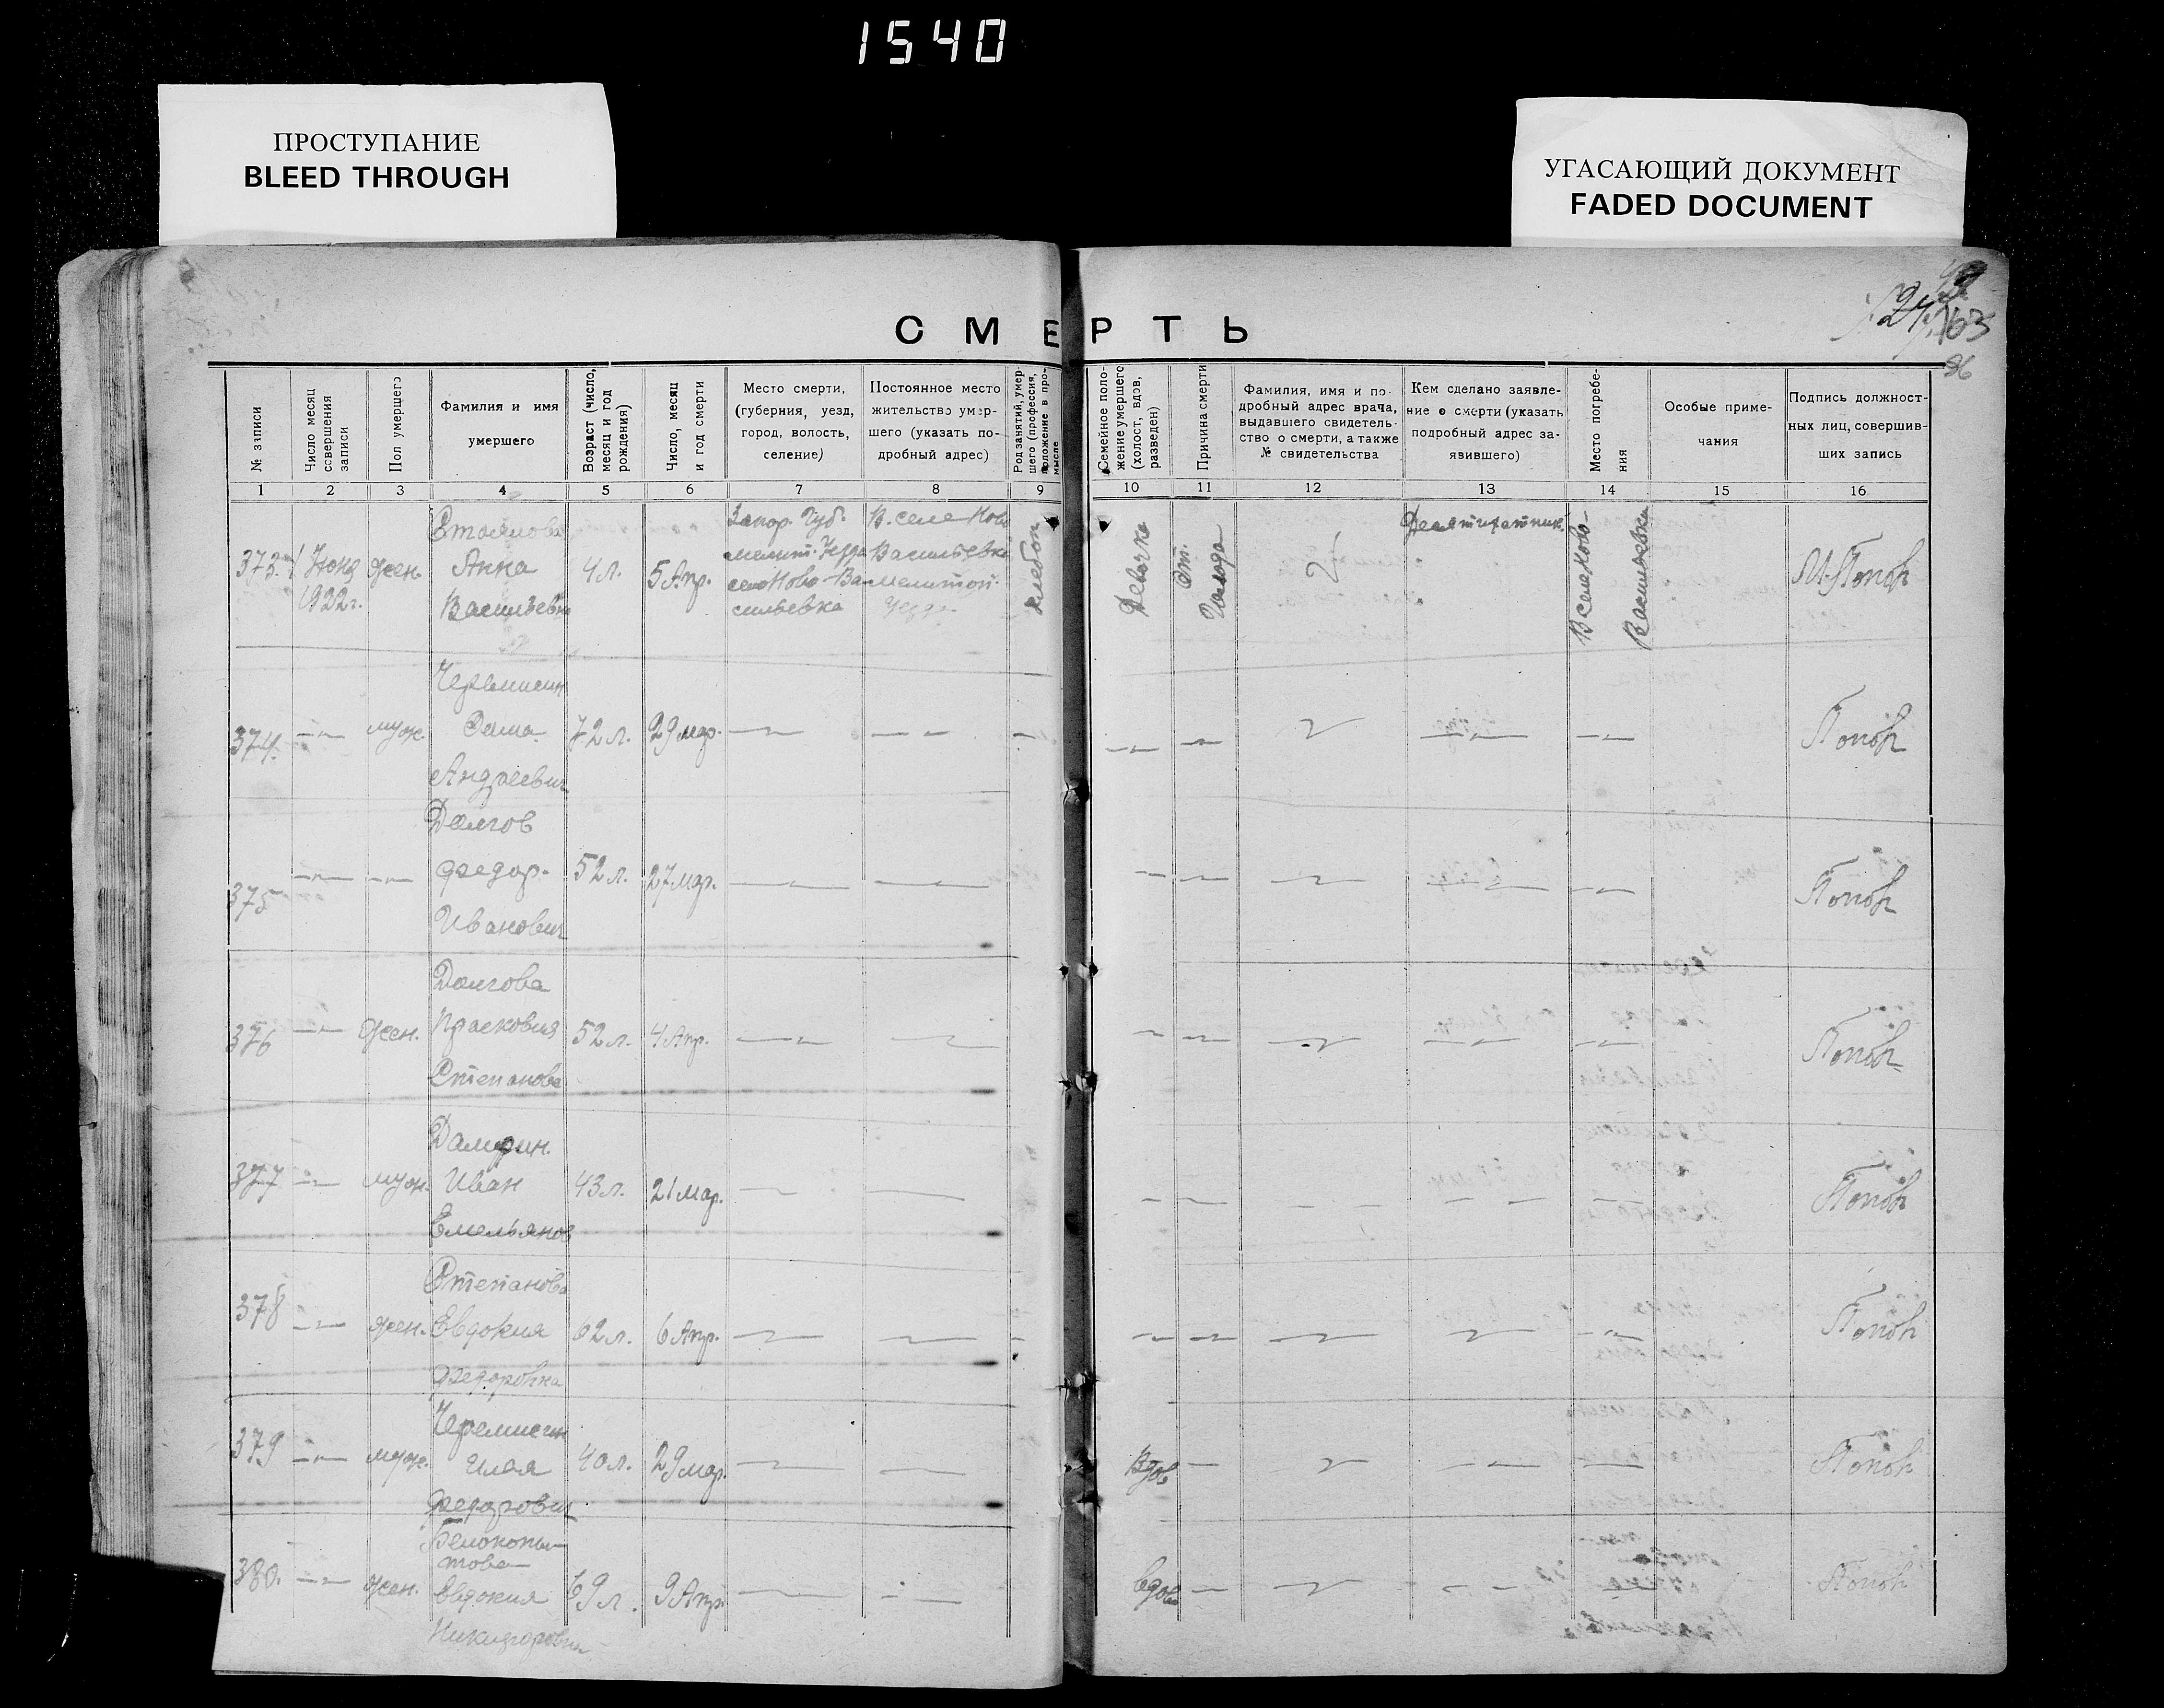 1540
ПРОСТУПАНИЕ
BLEED THROUGH
УГАСАЮЩИЙ ДОКУМЕНТ
FADED DOCUMENT
163
96
СМЕРТЬ
№ записи
Число месяц совершения записи
Пол умершего
Фамилия и имя
умершего
Возраст (число, месяц и год рождения)
Число, месяц и год смерти
Место смерти,
(губерния, уезд,
город, волость,
селение)
Постоянное место
жительство умер-
шего (указать по-
дробный адрес)
Род занятий, умер-
шего (профессия,
положение в про-
мысле
Семейное поло-
жение умершего
(холост, вдов,
разведен)
Причина смерти
Фамилия, имя и по-
дробный адрес врача,
выдавшего свидетель-
ство о смерти, а также
№ свидетельства
Кем сделано заявле-
ние о смерти (указать
подробный адрес за-
явившего)
Место погребе-
ния
Особые приме-
чания
Подпись должност-
ных лиц, совершив-
ших запись
1 2 3 4 5 6 7 8 9 10 11 12 13 14 15 16
373. 1 Июня 1922г. жен. Стоянова Анна Васильевна 4 л. 5 Апр.
Запор. Губ. Мелит. Уезда село Ново-Васильевка
В. селе Ново Васильевка Мелитоп. Уезда
хлебоп
Девочка
От. Голода
В селе Ново-Васильевка
М. Попов
374. муж. Андреевич 72 л. 29 мар. Попов
375 Долгов Федор Иванович 52 л. 27 мар. Попов
376 жен. Долгова Прасковия Степанова 52 л. 4 Апр. Попов
377 муж. Иван Емельянов 43 л. 21 мар. Попов
378 жен. Степанова Евдокия Федоровна 62 л. 6 Апр. Попов
379 муж. Черемисин Илья Федорович 40 л. 29 мар. Вдов Попов
380. жен. Белокопытова Евдокия 69 л. 9 Апр. Вдова Попов